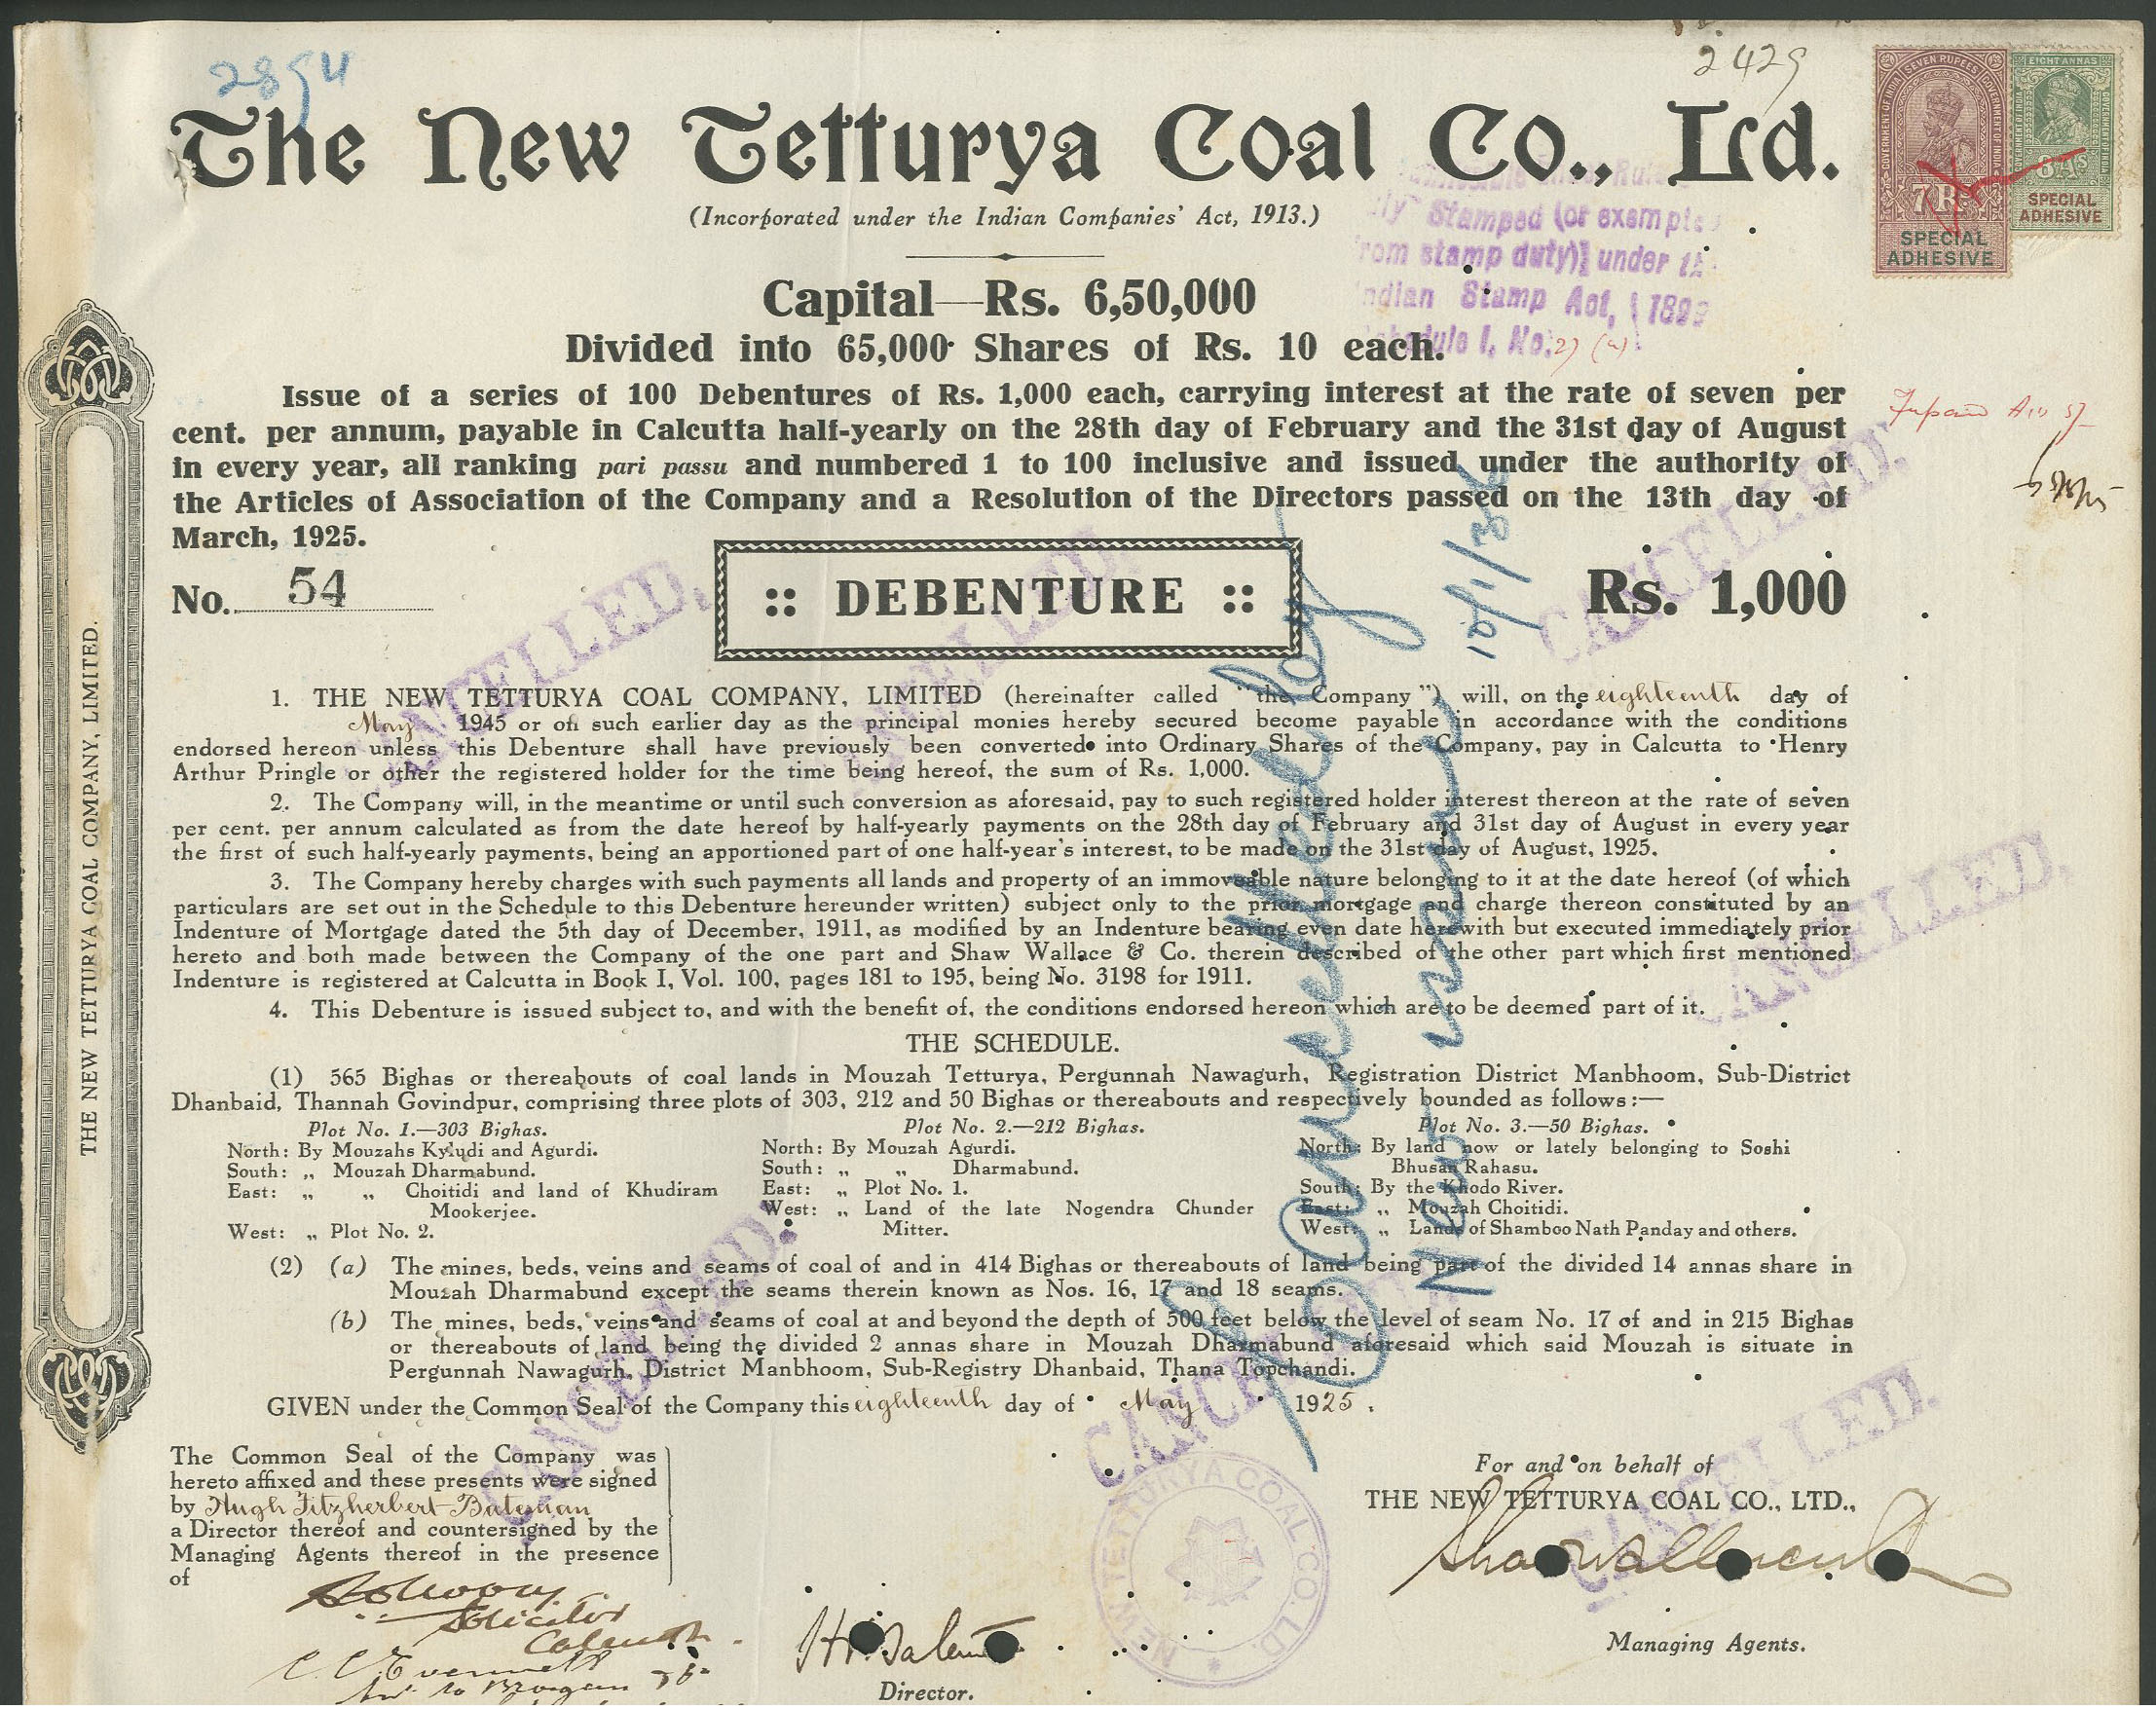 2894
2429
The New Tetturya Coal Co., Ltd.
GOVERNMENT OF INDIA SEVEN RUPEES GOVERNMENT OF INDIA
7 Rs
SPECIAL
ADHESIVE
EIGHT ANNAS
8 As
SPECIAL
ADHESIVE
(Incorporated under the Indian Companies' Act, 1913.)
Stamped (or exempted
from stamp duty) under the
Indian Stamp Act, 1899
Schedule I, No. 27 (a)
Capital—Rs. 6,50,000
Divided into 65,000 Shares of Rs. 10 each.
Issue of a series of 100 Debentures of Rs. 1,000 each, carrying interest at the rate of seven per
cent. per annum, payable in Calcutta half-yearly on the 28th day of February and the 31st day of August
in every year, all ranking pari passu and numbered 1 to 100 inclusive and issued under the authority of
the Articles of Association of the Company and a Resolution of the Directors passed on the 13th day of
March, 1925.
No. 54
:: DEBENTURE ::
Rs. 1,000
1. THE NEW TETTURYA COAL COMPANY, LIMITED (hereinafter called "the Company") will, on the eighteenth day of
May 1945 or on such earlier day as the principal monies hereby secured become payable in accordance with the conditions
endorsed hereon unless this Debenture shall have previously been converted into Ordinary Shares of the Company, pay in Calcutta to Henry
Arthur Pringle or other the registered holder for the time being hereof, the sum of Rs. 1,000.
2. The Company will, in the meantime or until such conversion as aforesaid, pay to such registered holder interest thereon at the rate of seven
per cent. per annum calculated as from the date hereof by half-yearly payments on the 28th day of February and 31st day of August in every year
the first of such half-yearly payments, being an apportioned part of one half-year's interest, to be made on the 31st day of August, 1925.
3. The Company hereby charges with such payments all lands and property of an immoveable nature belonging to it at the date hereof (of which
particulars are set out in the Schedule to this Debenture hereunder written) subject only to the prior mortgage and charge thereon constituted by an
Indenture of Mortgage dated the 5th day of December, 1911, as modified by an Indenture bearing even date herewith but executed immediately prior
hereto and both made between the Company of the one part and Shaw Wallace & Co. therein described of the other part which first mentioned
Indenture is registered at Calcutta in Book I, Vol. 100, pages 181 to 195, being No. 3198 for 1911.
4. This Debenture is issued subject to, and with the benefit of, the conditions endorsed hereon which are to be deemed part of it.
THE SCHEDULE.
(1) 565 Bighas or thereabouts of coal lands in Mouzah Tetturya, Pergunnah Nawagurh, Registration District Manbhoom, Sub-District
Dhanbaid, Thannah Govindpur, comprising three plots of 303, 212 and 50 Bighas or thereabouts and respectively bounded as follows:—
Plot No. 1.—303 Bighas.
North: By Mouzahs Kyludi and Agurdi.
South: „ Mouzah Dharmabund.
East: „ „ Choitidi and land of Khudiram
Mookerjee.
West: „ Plot No. 2.
Plot No. 2.—212 Bighas.
North: By Mouzah Agurdi.
South: „ „ Dharmabund.
East: „ Plot No. 1.
West: „ Land of the late Nogendra Chunder
Mitter.
Plot No. 3.—50 Bighas.
North: By land now or lately belonging to Soshi
Bhusan Rahasu.
South: By the Khodo River.
East: „ Mouzah Choitidi.
West: „ Lands of Shamboo Nath Panday and others.
(2) (a) The mines, beds, veins and seams of coal of and in 414 Bighas or thereabouts of land being part of the divided 14 annas share in
Mouzah Dharmabund except the seams therein known as Nos. 16, 17 and 18 seams.
(b) The mines, beds, veins and seams of coal at and beyond the depth of 500 feet below the level of seam No. 17 of and in 215 Bighas
or thereabouts of land being the divided 2 annas share in Mouzah Dharmabund aforesaid which said Mouzah is situate in
Pergunnah Nawagurh, District Manbhoom, Sub-Registry Dhanbaid, Thana Topchandi.
GIVEN under the Common Seal of the Company this eighteenth day of May 1925.
The Common Seal of the Company was
hereto affixed and these presents were signed
by Hugh Fitzherbert Bateman
a Director thereof and countersigned by the
Managing Agents thereof in the presence
of
Solicitor
Calcutta
Director.
NEW TETTURYA COAL CO. LTD.
For and on behalf of
THE NEW TETTURYA COAL CO., LTD.,
Managing Agents.
THE NEW TETTURYA COAL COMPANY, LIMITED.
Cancelled by
New
CANCELLED.
CANCELLED.
CANCELLED.
CANCELLED.
CANCELLED.
CANCELLED.
CANCELLED.